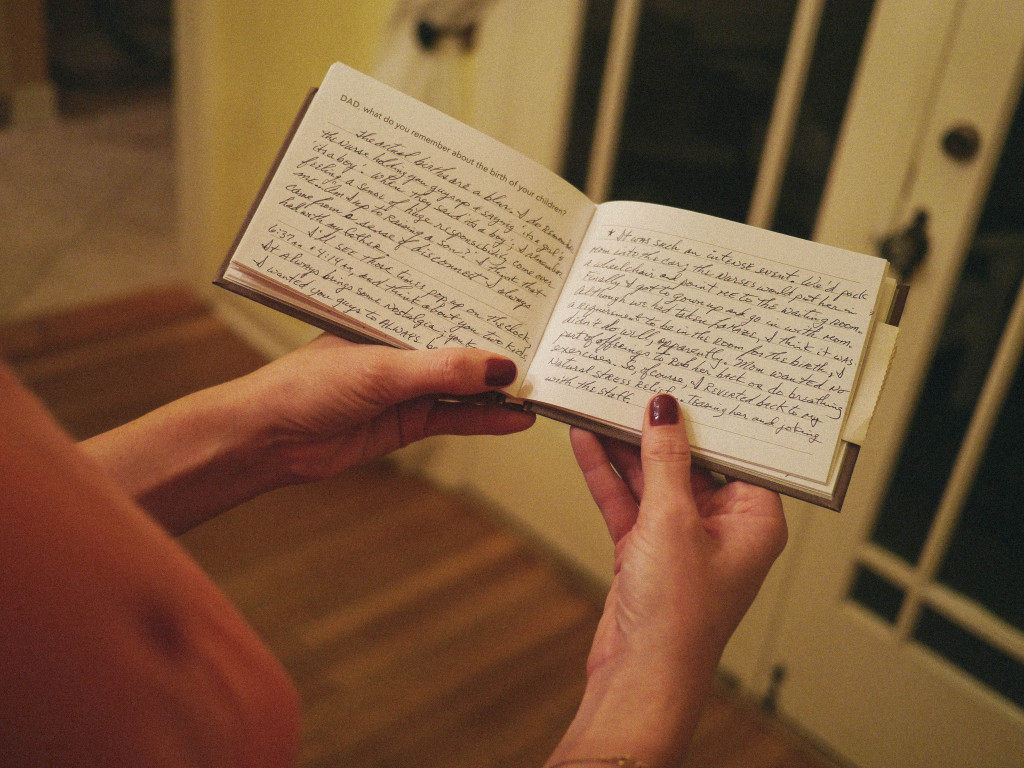 DAD, what do you remember about the birth of your children?
The actual births are a blur. I do remember
the nurse holding you guys up & saying 'it's a girl' &
'it's a boy'. When they said it's a boy, I remember
feeling a sense of huge responsibility come over
me. Am I up to raising a son? I think that
came from a sense of disconnect I always
had with my father.
I'll see those times pop up on the clock,
6:37 am & 4:14 pm, and think about you two kids.
It always brings some nostalgia, you know.
I wanted you guys to ALWAYS
* It was such an intense event. We'd pack
mom into the car; the nurses would put her in
a wheelchair and point me to the waiting room.
Finally I got to gown up and go in with mom.
Although we had taken Lamaze, I think it was
a requirement to be in the room for the birth, I
didn't do well, apparently. Mom wanted no
part of offerings to rub her back or do breathing
exercises. So, of course, I reverted back to my
natural stress relief. Teasing her and joking
with the staff.